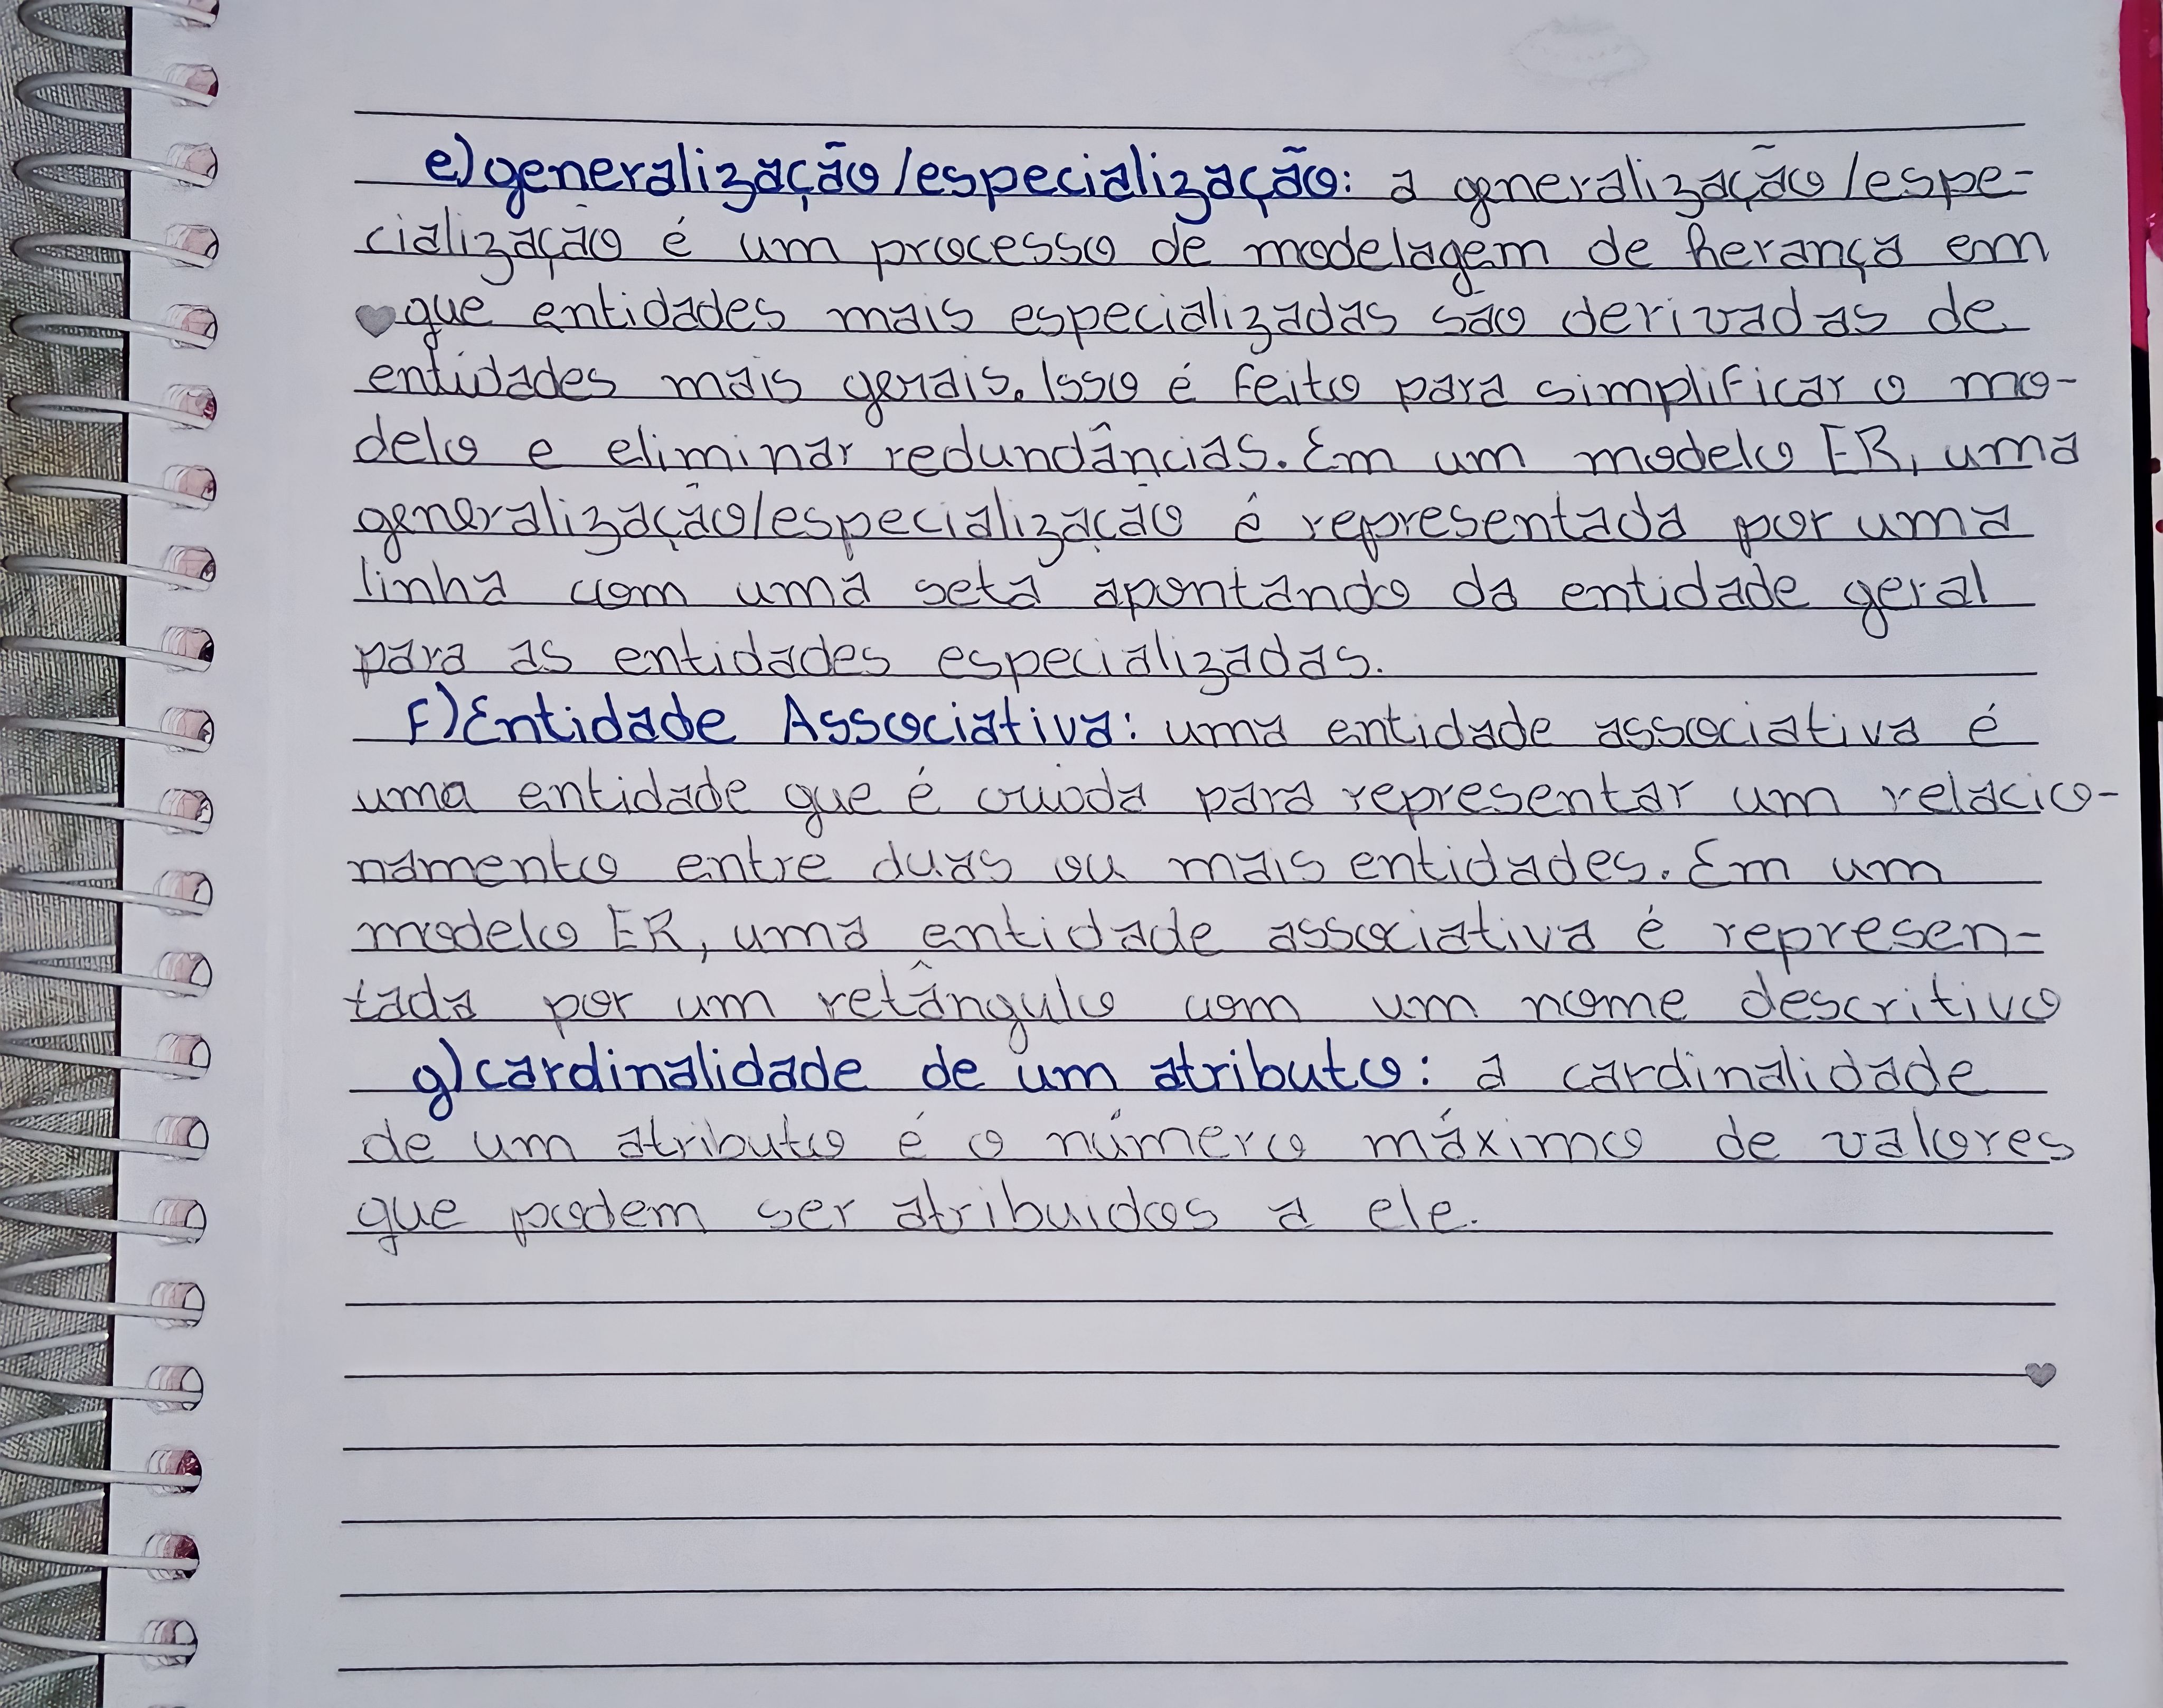 e) generalização/especialização: a generalização/espe-
cialização é um processo de modelagem de herança em
que entidades mais especializadas são derivadas de
entidades mais gerais. Isso é feito para simplificar o mo-
delo e eliminar redundâncias. Em um modelo ER, uma
generalização/especialização é representada por uma
linha com uma seta apontando da entidade geral
para as entidades especializadas.
F) Entidade Associativa: uma entidade associativa é
uma entidade que é criada para representar um relacio-
namento entre duas ou mais entidades. Em um
modelo ER, uma entidade associativa é represen-
tada por um retângulo com um nome descritivo
g) cardinalidade de um atributo: a cardinalidade
de um atributo é o número máximo de valores
que podem ser atribuidos a ele.